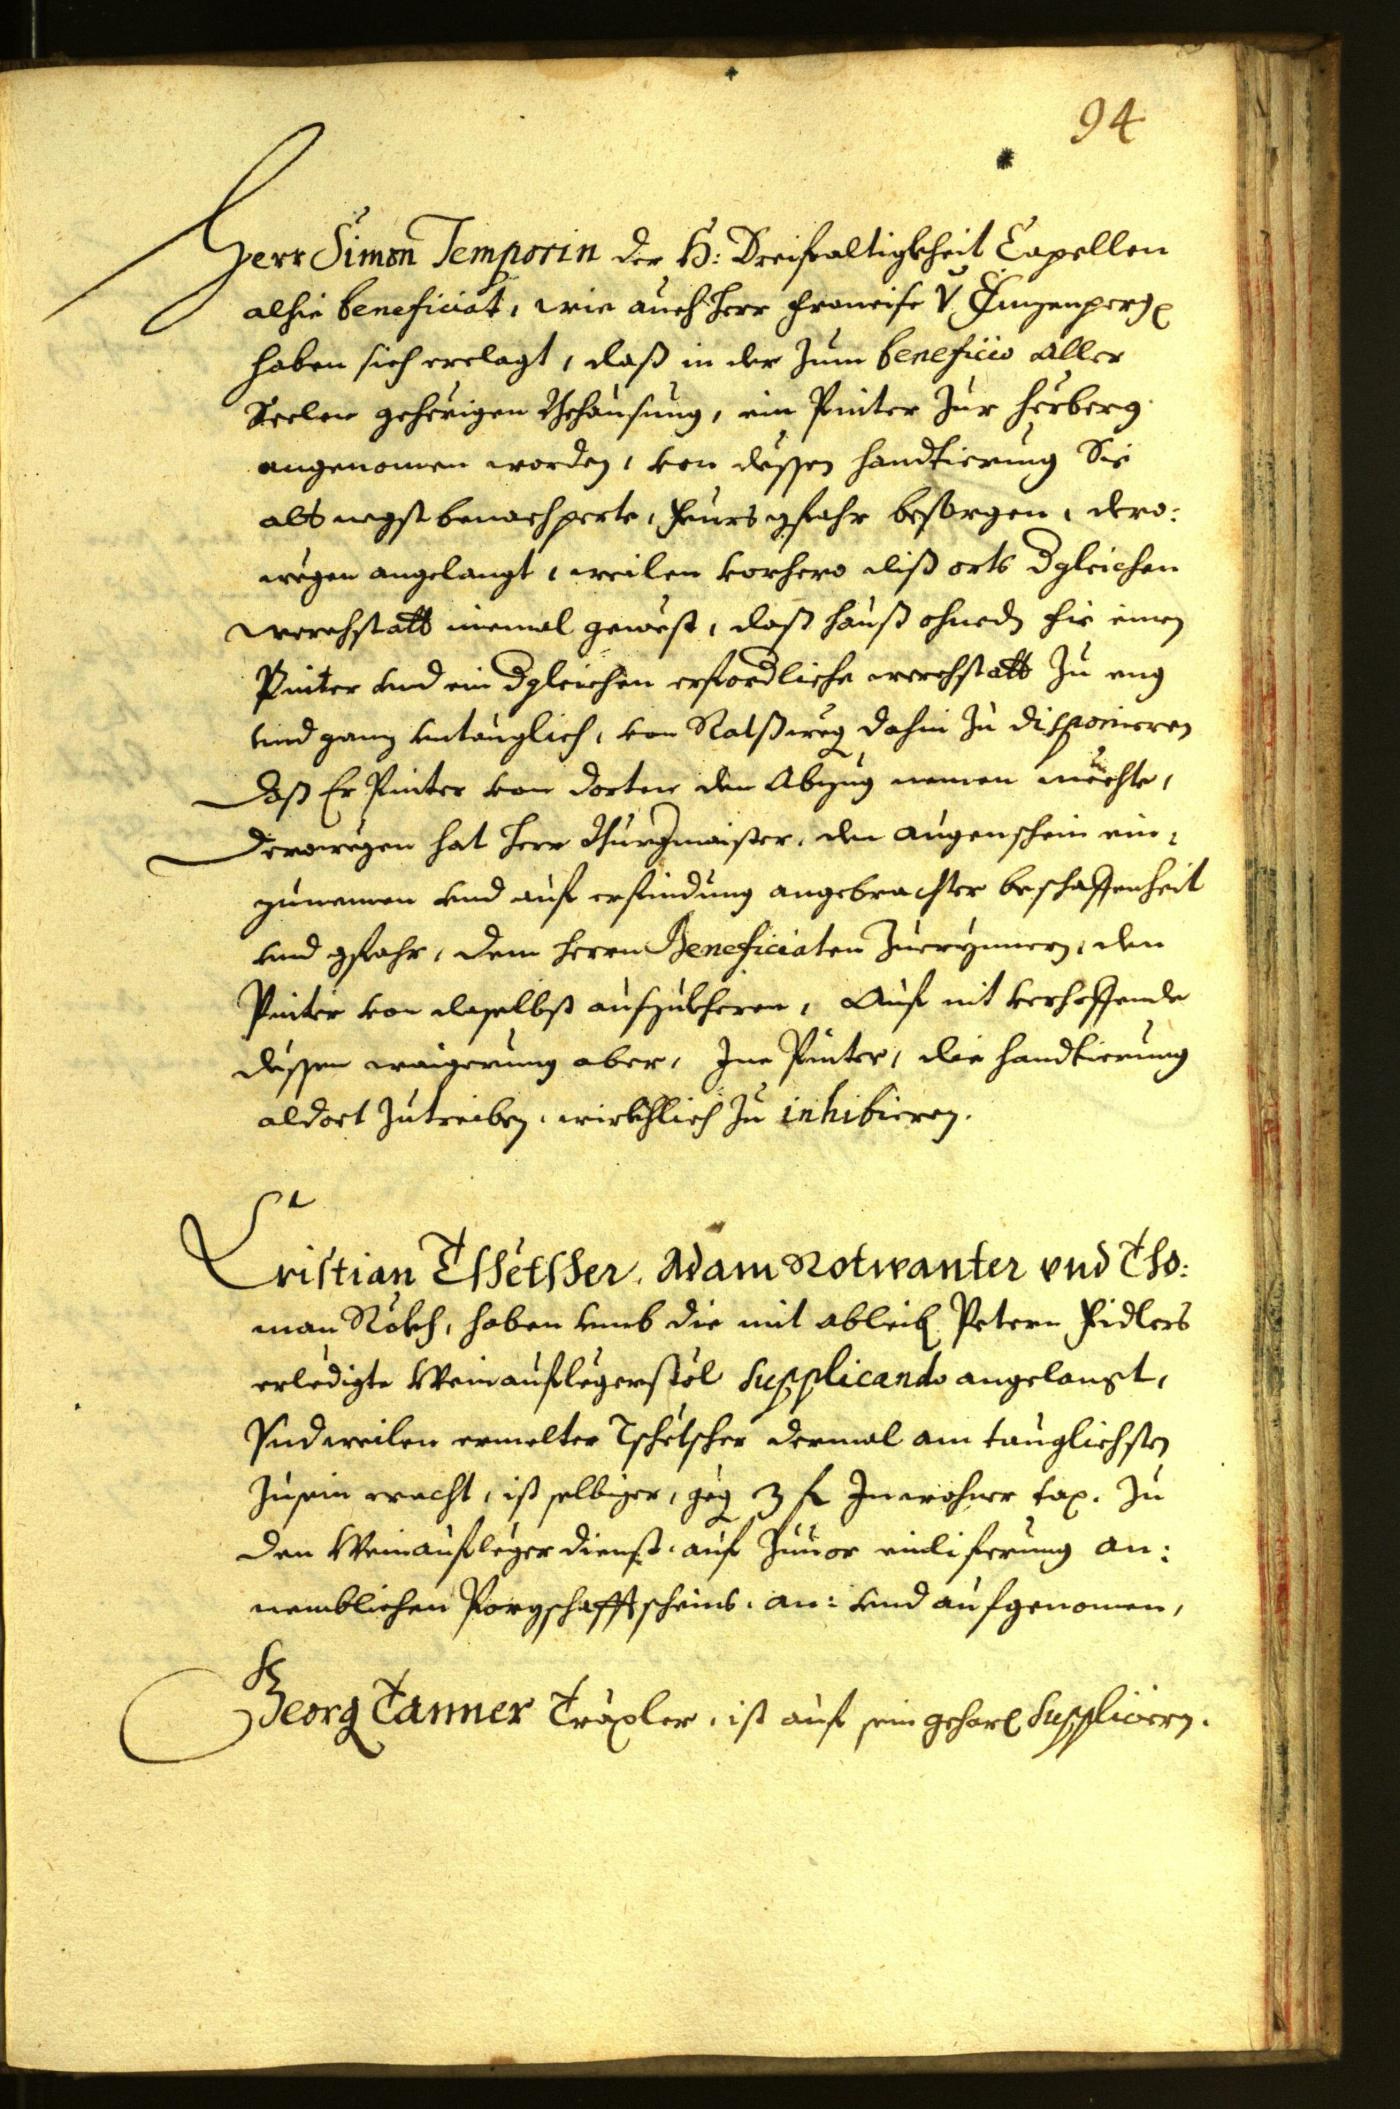 94
Herr Simon Temporin der H: Dreifaltigkheit Capellen
alhie beneficiat, wie auch Herr Francise V.
haben sich erclagt, daß in der zum beneficio aller
Seelen gehörigen Behausung, ein Pinter zur Herberg
angenomen worden, von dessen handtierung Sie
als negst benachperte, Feurs gfahr besorgen, dero:
wegen angelangt, weilen vorhero diß orts dgleichen
werchstatt niemal gewest, daß hauß ohnedz für einen
Pinter vnd ein dgleichen erfordliche werchstatt zu eng
vnd ganz vntauglich, von Ratßweg dahin zu disponieren
daß Er Pinter von dorten den Abzug nemen möchte,
Derowegen hat Herr Burgmaister, den augenschein ein:
zunemen vnd auf erfindung angebrachter beschaffenheit
vnd gfahr, dem Herrn Beneficiaten zuerynnern, den
Pinter von daselbst aufzukheren, Auf nit verhoffende
dessen waigerung aber, Ine Pinter, die handtierung
aldort zutreiben, wirkhlich zu inhibieren.
Cristian Tschetscher, Adam Rotwanter vnd Tho:
man Rökh, haben vmb die mit ableib Petern Fidlers
erledigte Weinauflegerstöl supplicando angelangt,
Vnd weilen ermelter Tschetscher dermal am tauglichsten
zusein eracht, ist selbiger, geg 3 fl Inwohner tax. zu
den Weinaufleger dienst, auf zuuor einliferung an:
nemblichen Porgschafftscheins, an: vnd aufgenomen,
Georg Tanner Träxler, ist auf sein gehors suppliciern.